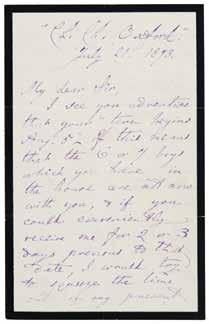 "Ch. Ch. Oxford."
July 21. 1893.
My dear Sir,
I see you advertise
that your "term begins
Aug. 5." If this means
that the 6 or 7 boys
which you have in
the house are not now
with you, & if you
could conveniently
receive me for 2 or 3
days previous to that
date, I would try
to squeeze the time
out of my present